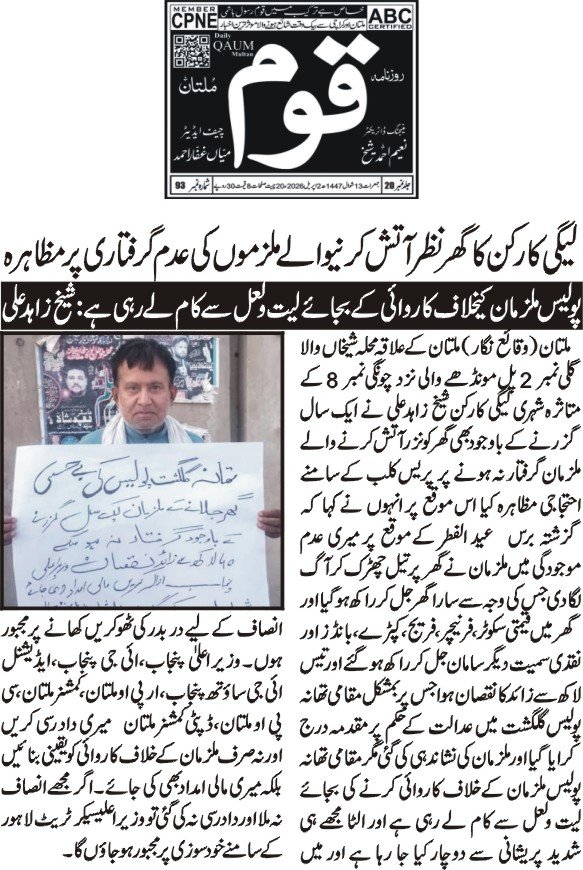 MEMBER
CPNE
خاص ہے ترکیب میں قوم رسول ہاشمی
ملتان اور کراچی سے بیک وقت شائع ہونے والا موقر ترین اخبار
ABC
CERTIFIED
Daily
QAUM
Multan
روزنامہ
قوم
ملتان
مینجنگ ڈائریکٹر
نعیم احمد شیخ
چیف ایڈیٹر
میاں غفار احمد
جلد نمبر 20
جمعرات 13 شوال 1447ھ 2 اپریل 2026ء 20 چیت صفحات 8 قیمت 30 روپے
شمارہ نمبر 93
لیگی کارکن کا گھر نظر آتش کرنیوالے ملزموں کی عدم گرفتاری پر مظاہرہ
پولیس ملزمان کیخلاف کاروائی کے بجائے لیت و لعل سے کام لے رہی ہے: شیخ زاہد علی
ملتان (وقائع نگار) ملتان کے علاقہ محلہ شیخاں والا
گلی نمبر 2 پل مونڈھے والی نزد چونگی نمبر 8 کے
متاثرہ شہری لیگی کارکن شیخ زاہد علی نے ایک سال
گزرنے کے باوجود بھی گھر کو نزر آتش کرنے والے
ملزمان گرفتار نہ ہونے پر پریس کلب کے سامنے
احتجاجی مظاہرہ کیا اس موقع پر انہوں نے کہا کہ
گزشتہ برس عید الفطر کے موقع پر میری عدم
موجودگی میں ملزمان نے گھر پر تیل چھڑک کر آگ
لگا دی جس کی وجہ سے سارا گھر جل کر راکھ ہو گیا اور
گھر میں قیمتی سکوٹر، فرنیچر، فریج، کپڑے، بانڈز اور
نقدی سمیت دیگر سامان جل کر راکھ ہو گئے اور تیس
لاکھ سے زائد کا نقصان ہوا جس پر بمشکل مقامی تھانہ
پولیس گلگشت میں عدالت کے حکم پر مقدمہ درج
کرایا گیا اور ملزمان کی نشاندہی کی گئی مگر مقامی تھانہ
پولیس ملزمان کے خلاف کاروائی کرنے کی بجائے
لیت و لعل سے کام لے رہی ہے اور الٹا مجھے ہی
شدید پریشانی سے دوچار کیا جا رہا ہے اور میں
تھانہ گلگشت پولیس کی بے حسی
گھر جلانے کے ملزمان ایک سال گزرنے
کے باوجود گرفتار نہ ہو سکے
لاکھ سے زائد نقصان
مالی امداد دی جائے
انصاف کے لیے در بدر کی ٹھوکریں کھانے پر مجبور
ہوں۔ وزیر اعلیٰ پنجاب، ائی جی پنجاب، ایڈیشنل
ائی جی ساؤتھ پنجاب، ار پی او ملتان، کمشنر ملتان، سی
پی او ملتان، ڈپٹی کمشنر ملتان میری داد رسی کریں
اور نہ صرف ملزمان کے خلاف کاروائی کو یقینی بنائیں
بلکہ میری مالی امداد بھی کی جائے۔ اگر مجھے انصاف
نہ ملا اور دادرسی نہ کی گئی تو وزیر اعلیٰ سیکرٹریٹ لاہور
کے سامنے خود سوزی پر مجبور ہو جاؤں گا۔